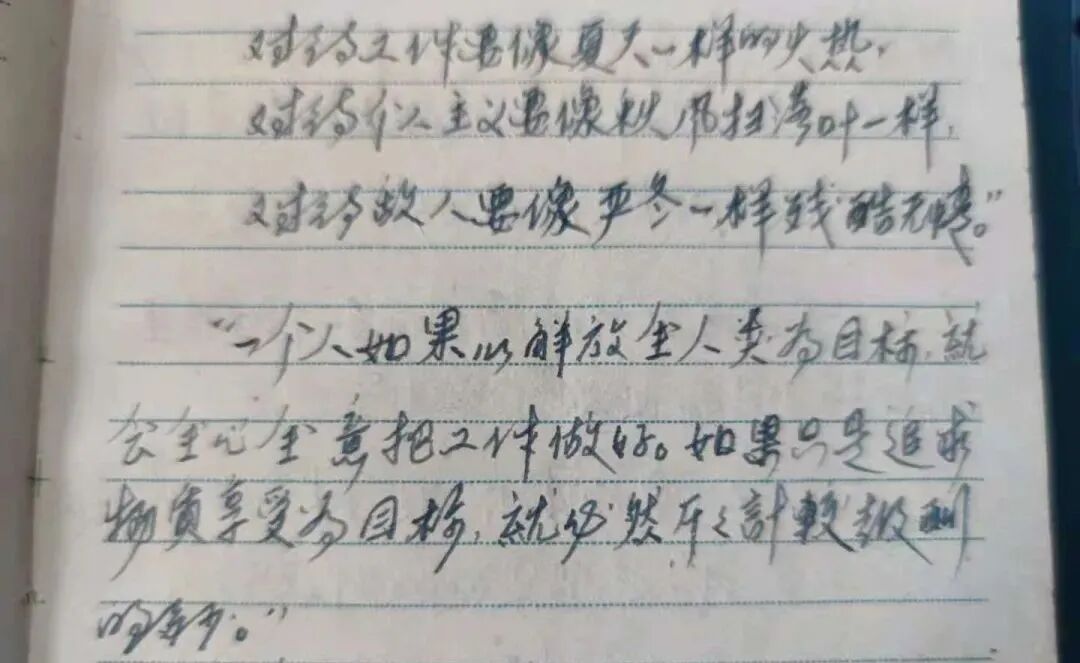 对待工作要像夏天一样的火热,
对待个人主义要像秋风扫落叶一样,
对待敌人要像严冬一样残酷无情。”
“一个人如果以解放全人类为目标,就
会全心全意把工作做好。如果只是追求
物质享受为目标,就必然斤々計較
的多少。”